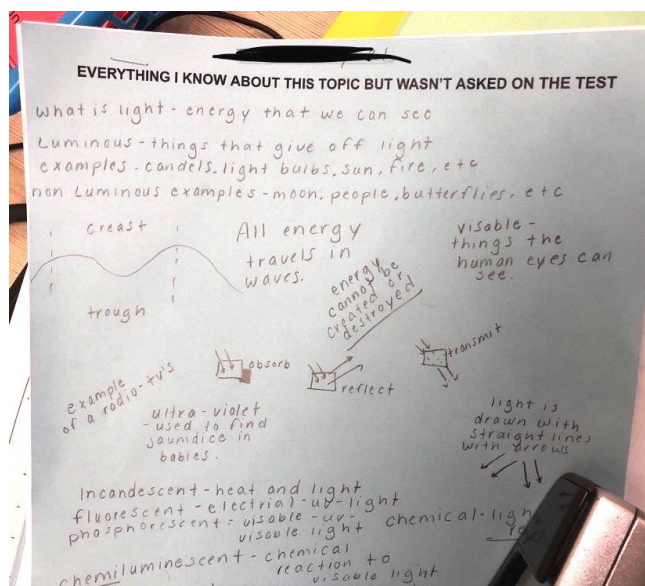 EVERYTHING I KNOW ABOUT THIS TOPIC BUT WASN'T ASKED ON THE TEST
what is light - energy that we can see
Luminous - things that give off light
examples - candels. light bulbs. sun, fire, etc
non Luminous examples - moon. people, butterflies, etc
creast
trough
All energy
travels in
waves.
visable -
things the
human eyes can
see.
energy
cannot be
created or
destroyed
absorb
reflect
transmit
example
of a radio - tv's
ultra - violet
- used to find
jaumdice in
babies.
light is
drawn with
straight lines
with arrows
Incandescent - heat and light
fluorescent - electrial - uv - light
phosphorescent = visable - uv -
visable light
chemical - light
chemiluminescent - chemical
reaction to
visable light